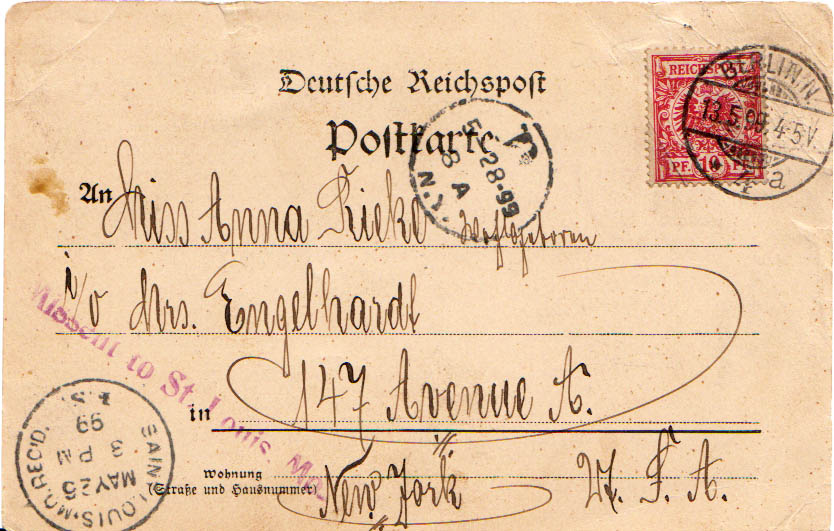 Deutsche Reichspost
Postkarte
REICHSPOST
PF. 10 PF.
BERLIN, N.
13.5.99. 4-5V.
a
N.Y.
5-28-99
8 A
An Miss Anna Rieke Wohlgeboren
i/o Mrs. Engelhardt
Missent to St. Louis, Mo.
147 Avenue A.
in
New York U. S. A.
Wohnung
(Straße und Hausnummer)
SAINT LOUIS, MO. REC'D.
MAY 25
3 PM
99